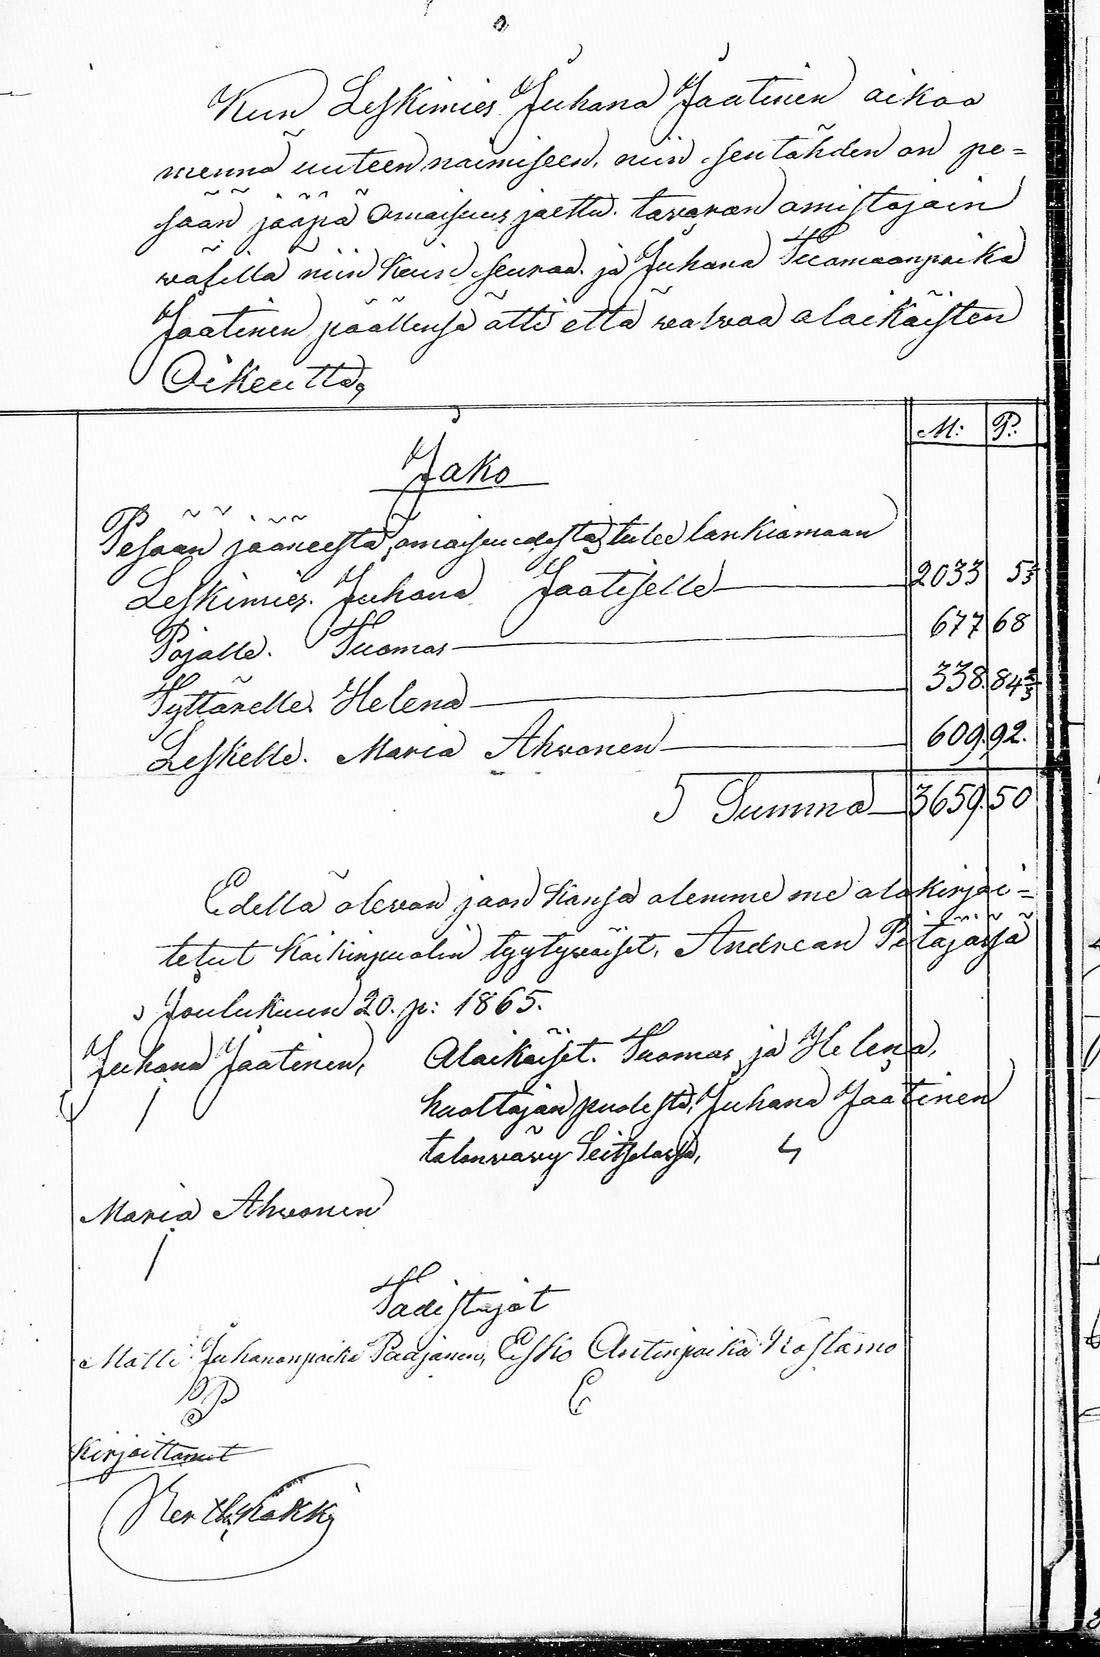 Kun Leskimies Juhana Jaatinen aikoo
mennä uuteen naimiseen, niin sentähden on pe=
sään jääpä omaisuus jaettu tavaran omistajain
wälillä niin kuin seuraa ja Juhana Tuomaanpoika
Jaatinen päällensä otti että walwoa alaikäisten
Oikeutta,
M: P:
Jako
Pesään jääneestä omaisuudesta tulee lankiamaan
Leskimies. Juhana Jaatiselle 2033 5⅓
Pojalle. Tuomas 677 68
Tyttärelle. Helena 338. 84⅔
Leskelle. Maria Ahwonen 609. 92.
Summa 3659. 50
Edellä olewan jaon kansa olemme me alakirjoi=
tetut kaikinpuolin tyytywäiset, Andrean Pitäjässä
Joulukuun 20. p: 1865.
Juhana Jaatinen, Alaikäiset. Tuomas ja Helena,
huoltajan puolesta, Juhana Jaatinen
talonwäwy
Maria Ahwonen
Todistajat
Matti Juhananpoika Paajanen, Esko Antinpoika Kostamo
P E
Kirjoittanut